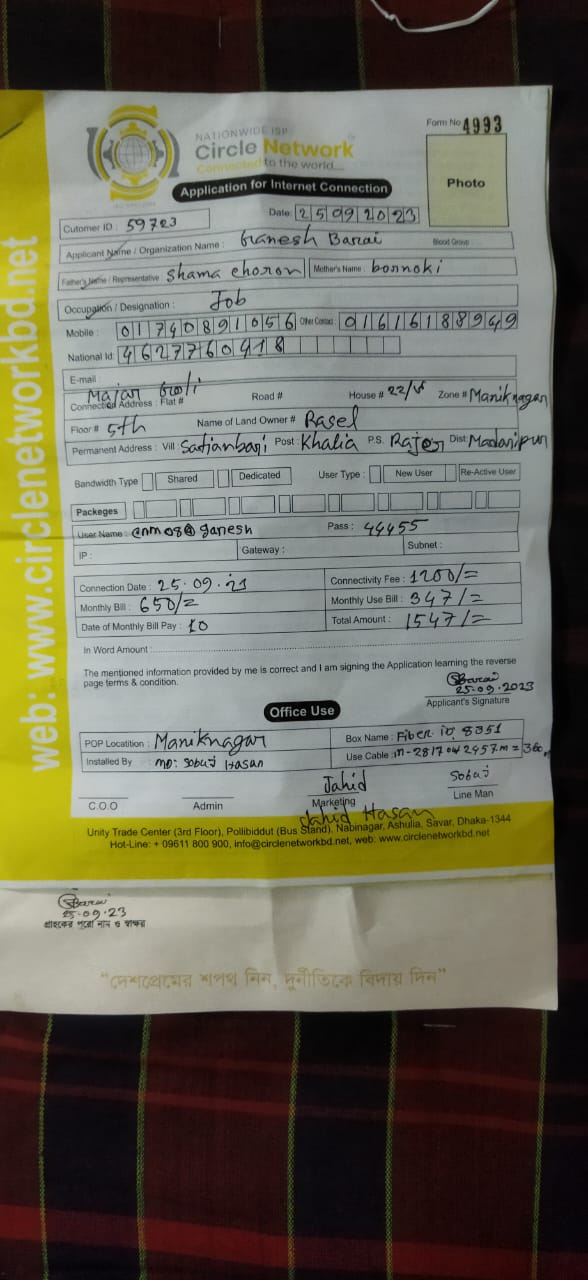 NATIONWIDE ISP
Circle Network
Connected to the world....
Form No 4993
Application for Internet Connection
Photo
Cutomer ID : 59723
Date: 25092023
Applicant Name / Organization Name : Ganesh Barai Blood Group :
Father's Name / Representative : Shama choron Mother's Name : bornoki
Occupation / Designation : Job
Mobile : 01740891056 Other Contact : 01616188949
National Id: 4627760418
E-mail
Connected Address : Flat # Majar Goli Road # House # 22/ Zone # Maniknagar
Floor # 5th Name of Land Owner # Rasel
Permanent Address : Vill : Post : Khalia P.S. Dist: Madaripur
Bandwidth Type Shared Dedicated User Type : New User Re-Active User
Packeges
User Name : @nm08@ganesh Pass : 44455
IP : Gateway : Subnet :
Connection Date : 25.09.23 Connectivity Fee : 1200/=
Monthly Bill : 650/= Monthly Use Bill : 347/=
Date of Monthly Bill Pay : 10 Total Amount : 1547/=
In Word Amount :
The mentioned information provided by me is correct and I am signing the Application learning the reverse
page terms & condition.
Barai
25.09.2023
Applicant's Signature
Office Use
POP Locatition : Maniknagar Box Name : Fiber iD 8351
Installed By : MD: Sobuj Hasan Use Cable : m-2817 04 2457m = 360
Jahid Sobuj
C.O.O Admin Marketing Line Man
Jahid Hasan
Unity Trade Center (3rd Floor), Pollibiddut (Bus Stand), Nabinagar, Ashulia, Savar, Dhaka-1344
Hot-Line: + 09611 800 900, info@circlenetworkbd.net, web: www.circlenetworkbd.net
web: www.circlenetworkbd.net
Barai
25.09.23
গ্রাহকের পুরো নাম ও স্বাক্ষর
"দেশপ্রেমের শপথ নিন, দুর্নীতিকে বিদায় দিন"